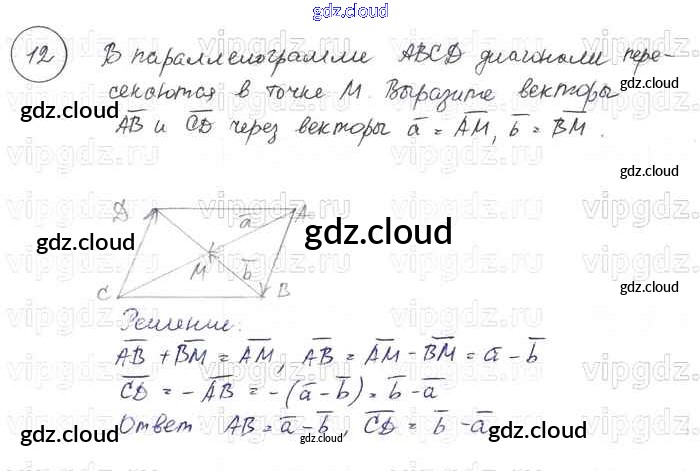 gdz.cloud
12 В параллелограмме ABCD диагонали пере-
секаются в точке M. Выразите векторы
AB и CD через векторы a = AM, b = BM.
gdz.cloud
gdz.cloud
gdz.cloud
D a A
gdz.cloud
gdz.cloud
M b
C B
gdz.cloud
Решение:
AB + BM = AM, AB = AM - BM = a - b
CD = - AB = -(a - b) = b - a
Ответ AB = a - b, CD = b - a
gdz.cloud
gdz.cloud
gdz.cloud
gdz.cloud
vipgdz.ru